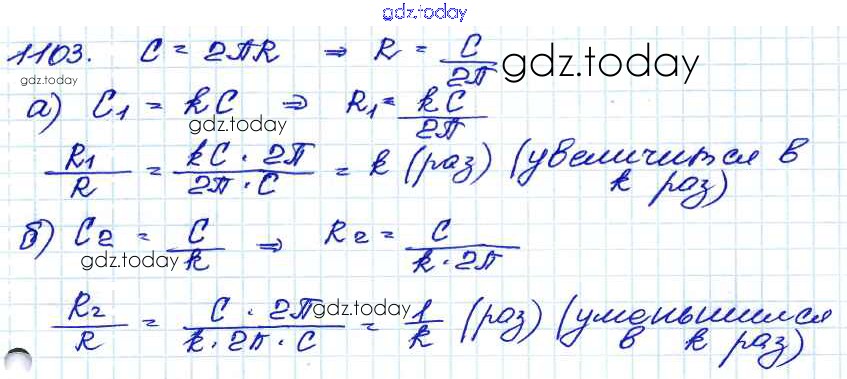 gdz.today
1103. C = 2ПR ⇒ R = C/2П gdz.today
gdz.today
а) C₁ = kC ⇒ R₁ = kC/2П
gdz.today
R₁/R = kC · 2П/2П · C = k (раз) (увеличится в
k раз)
б) C₂ = C/k ⇒ R₂ = C/k · 2П
gdz.today
R₂/R = C · 2П/k · 2П · C = 1/k (раз) (уменьшился
gdz.today
в k раз)